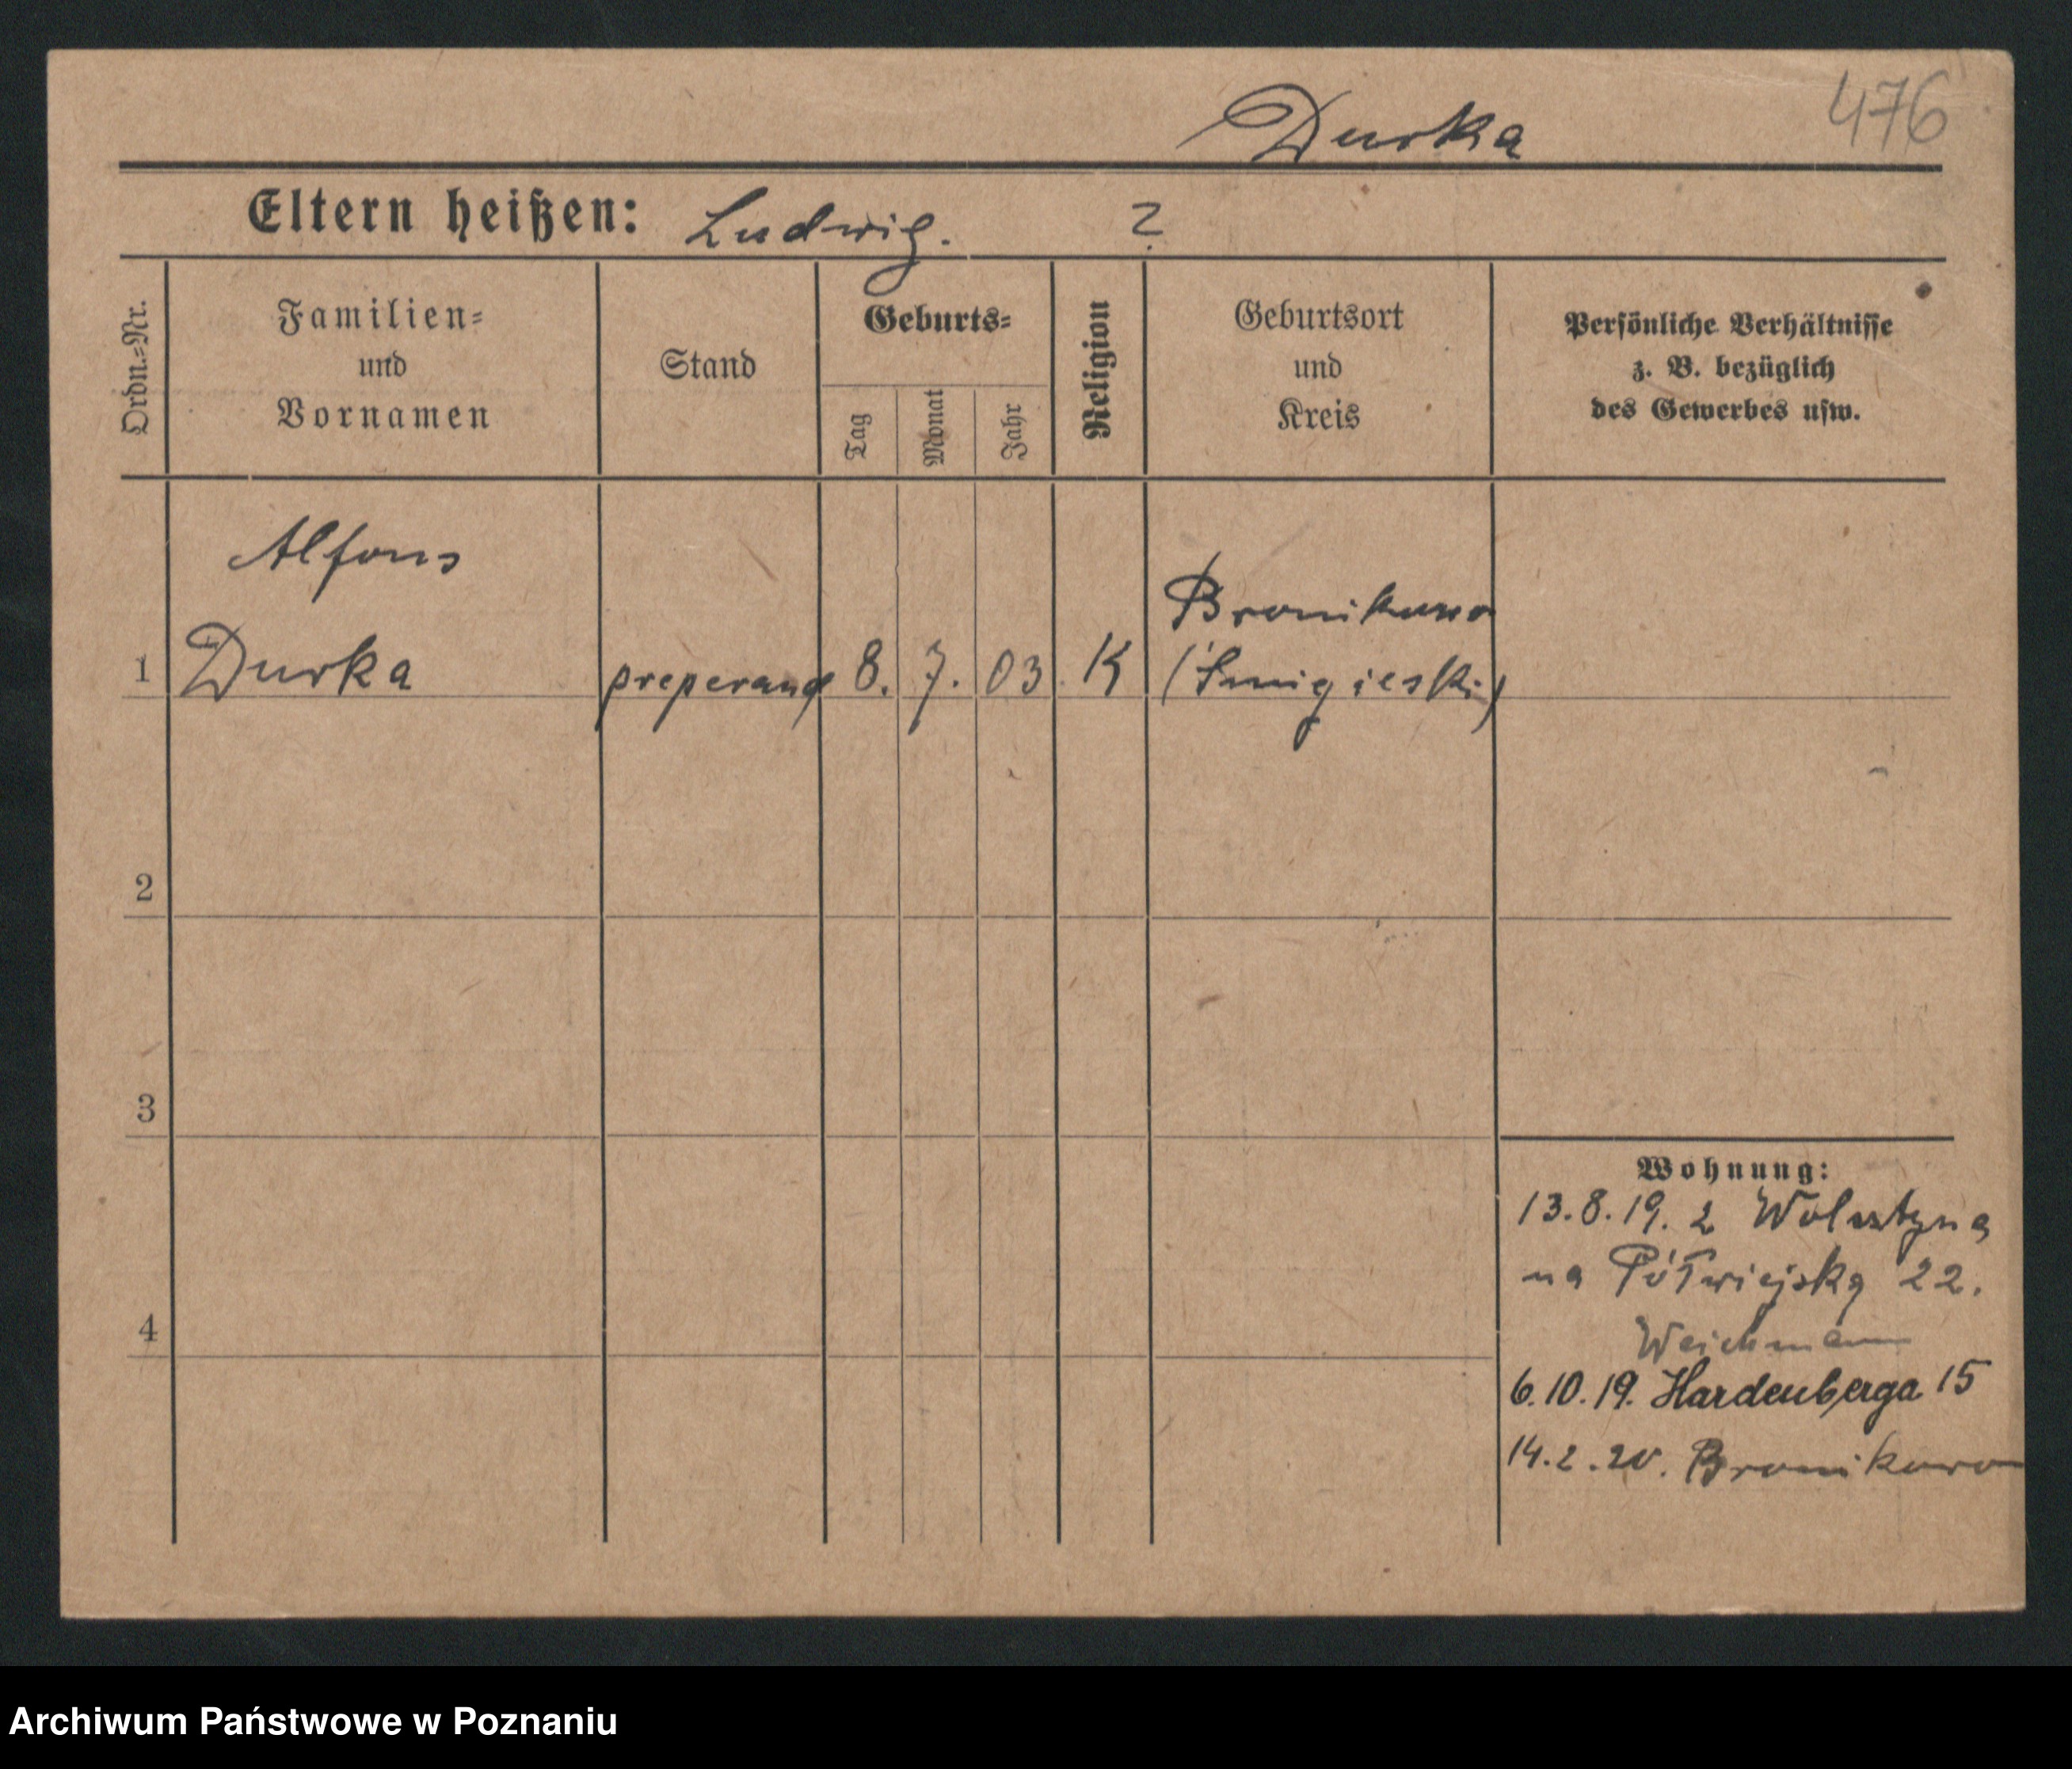 476
Durka
Eltern heißen: Ludwig. ?
Ordn.-Nr.
Familien-
und
Vornamen
Stand
Geburts-
Tag
Monat
Jahr
Religion
Geburtsort
und
Kreis
Persönliche Verhältnisse
z. B. bezüglich
des Gewerbes usw.
Alfons
Bronikowo
1 Durka preperand 8. 7. 03. K (Śmigielski)
2
3
4
Wohnung:
13.8.19. z Wolsztyna
na Półwiejską 22.
Weichmann
6.10.19. Hardenberga 15
14.2.20. Bronikowo
Archiwum Państwowe w Poznaniu